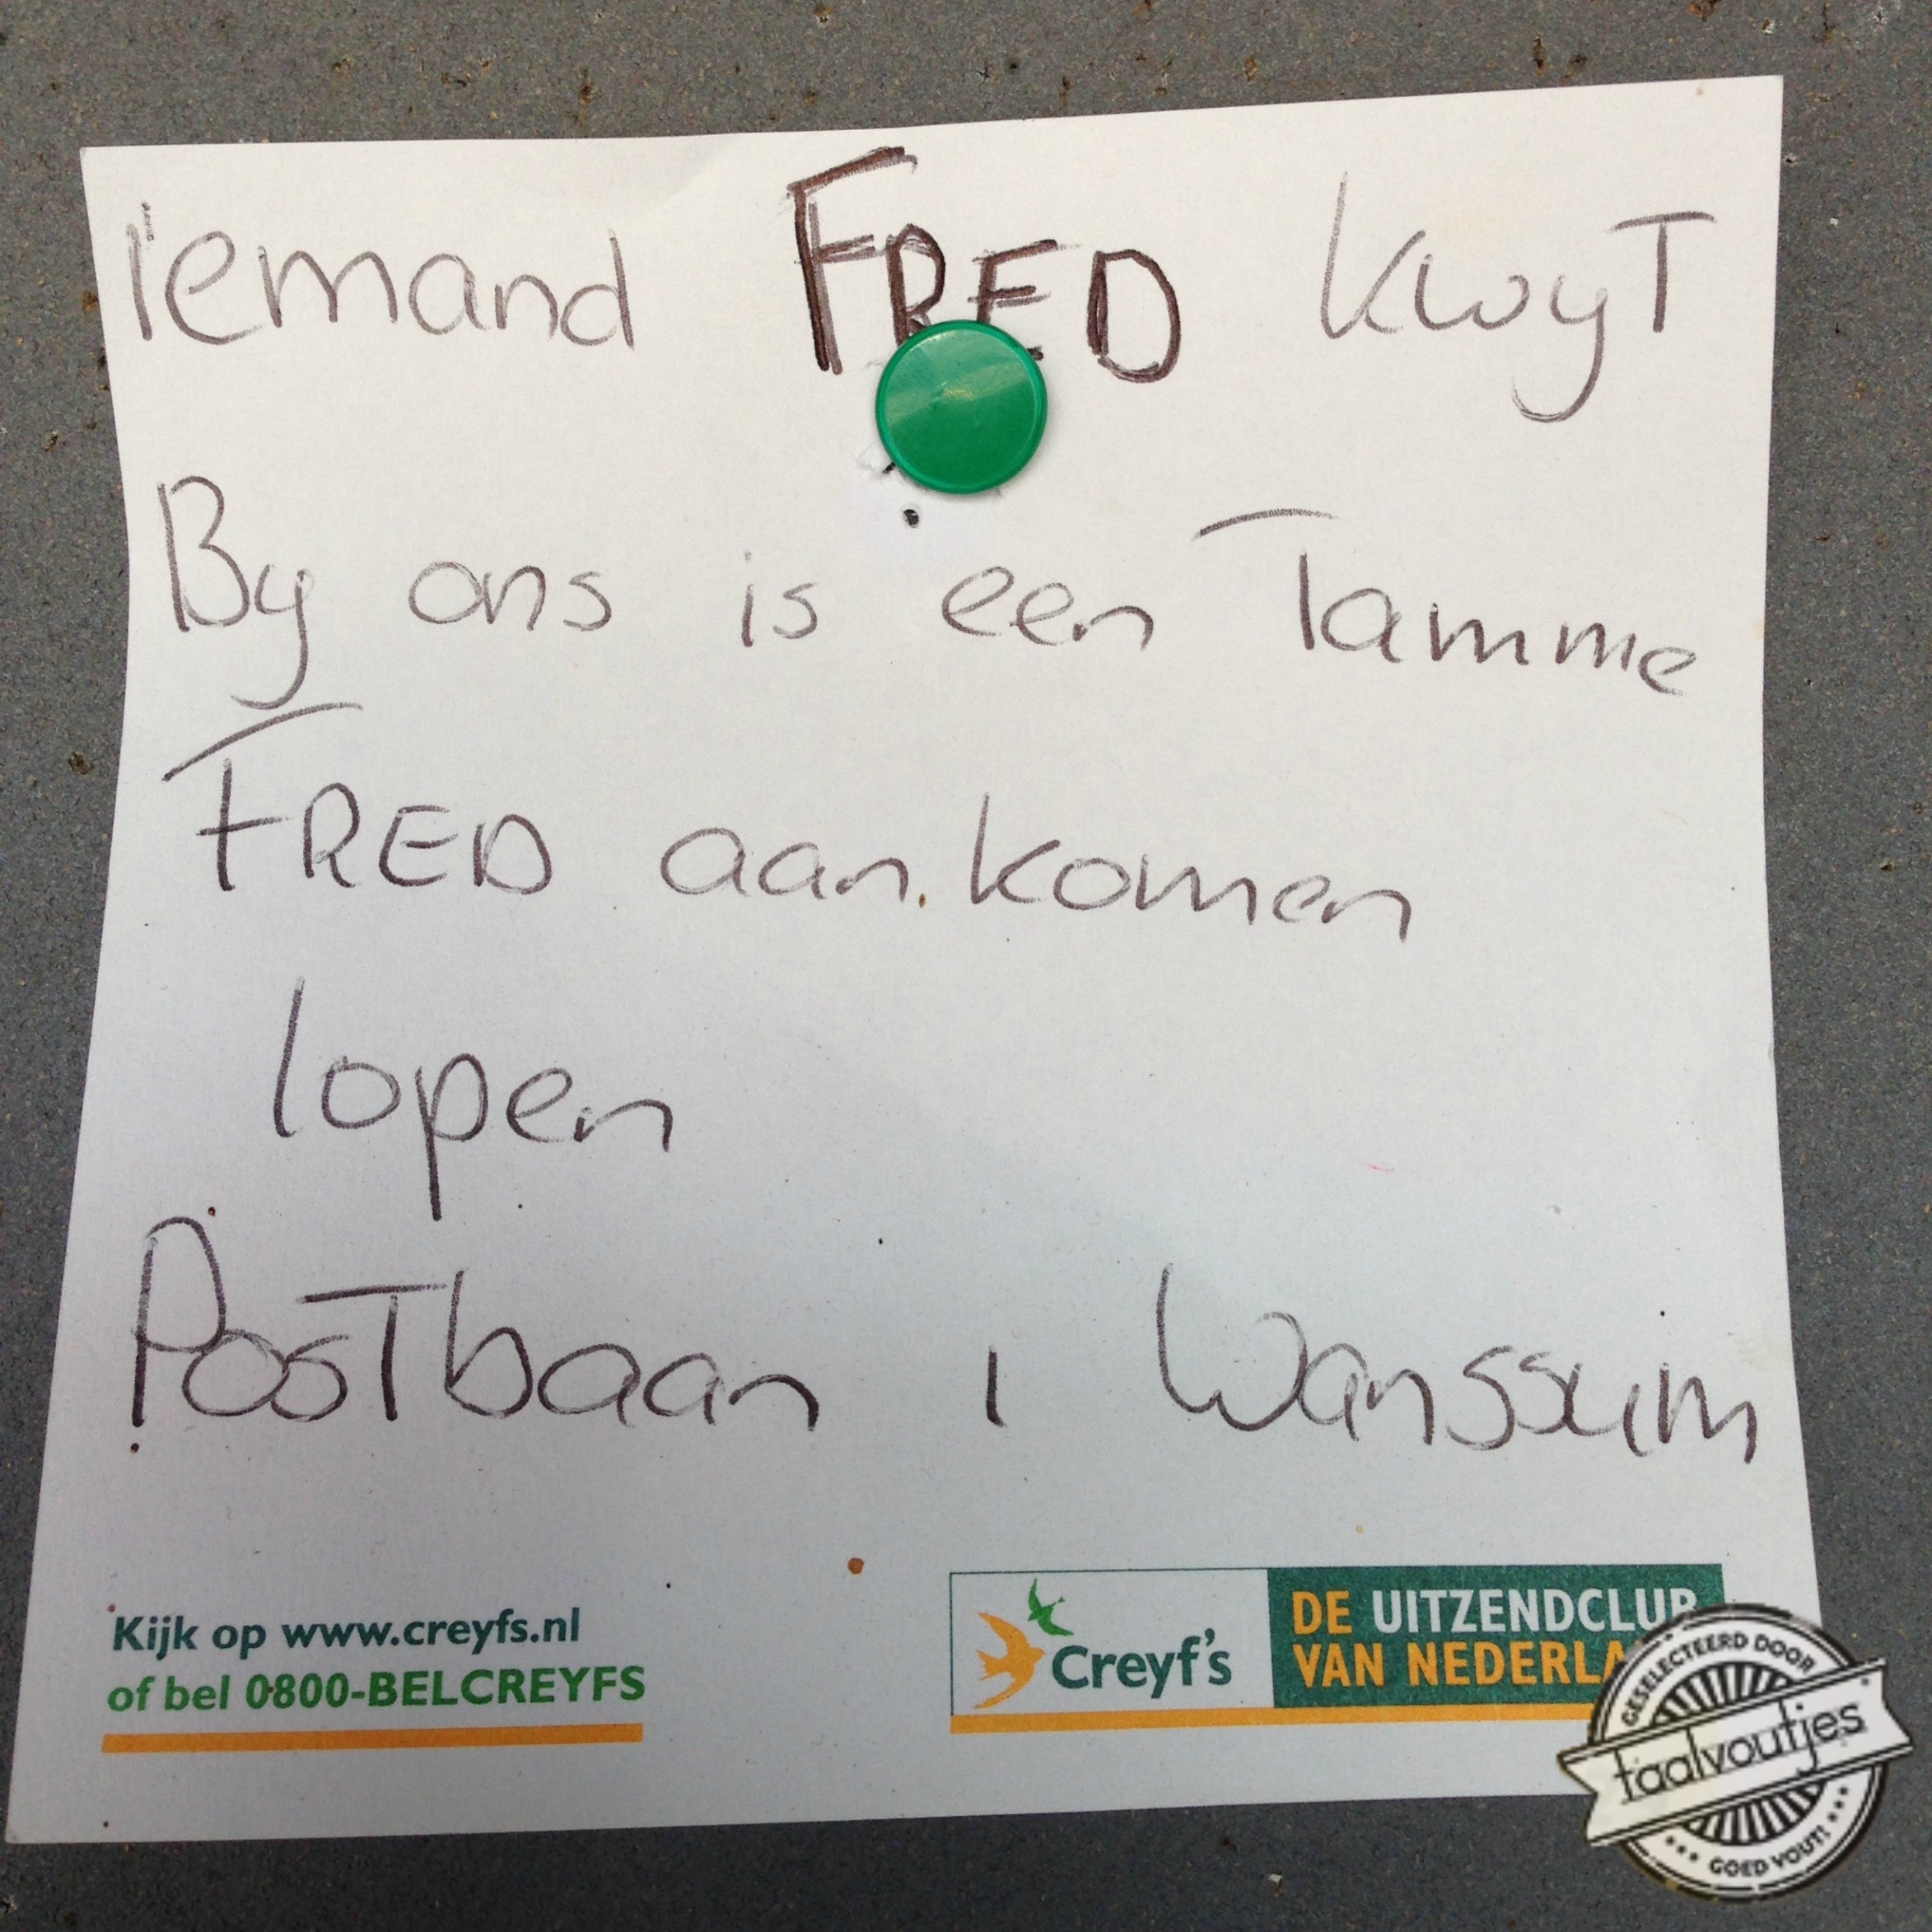 iemand FRED kwyT
By ons is een Tamme
FRED aan komen
lopen
PosTbaan 1 Wanssum
Kijk op www.creyfs.nl
of bel 0800-BELCREYFS
Creyf's
DE UITZENDCLUB
VAN NEDERLA
GESELECTEERD DOOR
taalvoutjes
GOED VOUT!